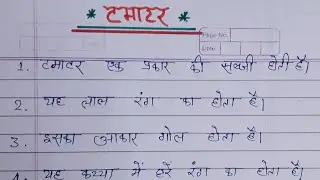 * टमाटर *
Page No.
Date
1. टमाटर एक प्रकार की सब्जी होती है।
2. यह लाल रंग का होता है।
3. इसका आकार गोल होता है।
4. यह कच्चा में हरे रंग का होता है।